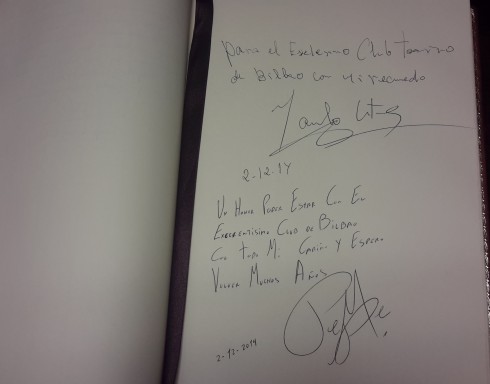 para el Exelesmo Club taurino
de Bilbao con mi recuerdo
2-12-14
Un Honor Poder Estar Con En
Excelentisimo Club de Bilbao
Con todo Mi Cariño Y Espero
Volver Muchos Años
2-12-2014